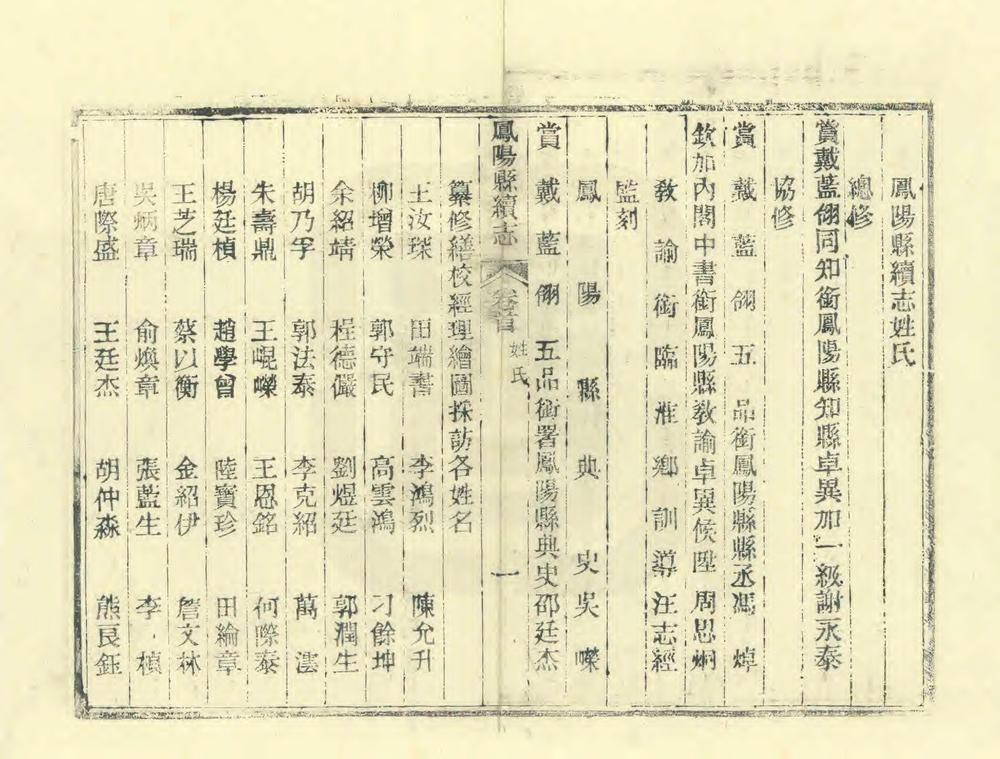 鳳陽縣續志姓氏
總修
賞戴藍翎同知銜鳳陽縣知縣卓異加一級謝永泰
協修
賞戴藍翎五品銜鳳陽縣縣丞馮焯
欽加內閣中書銜鳳陽縣教諭卓異候陞周思炯
教諭銜臨淮鄉訓導汪志經
監刻
鳳陽縣典史吳嶸
賞戴藍翎五品銜署鳳陽縣典史邵廷杰
鳳陽縣續志 卷首 姓氏 一
纂修繕校經理繪圖採訪各姓名
王汝琛 田端書 李鴻烈 陳允升
柳增榮 郭守民 高雲鴻 刁餘坤
余紹靖 程德儼 劉煜廷 郭潤生
胡乃孚 郭法泰 李克紹 萬澐
朱壽鼎 王崐嶸 王恩銘 何際泰
楊廷楨 趙學曾 陸寶珍 田綸章
王芝瑞 蔡以衡 金紹伊 詹文林
吳炳章 俞煥章 張藍生 李楨
唐際盛 王廷杰 胡仲森 熊良鈺